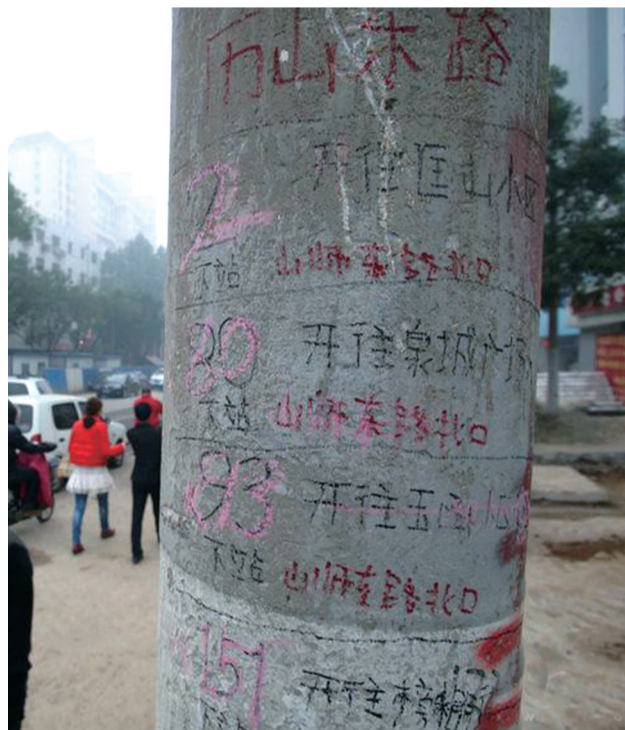 历山东路
2 开往匡山小区
下站 山师东路北口
80 开往泉城广场
下站 山师东路北口
83 开往玉函小区
下站 山师东路北口
151 开往
下站